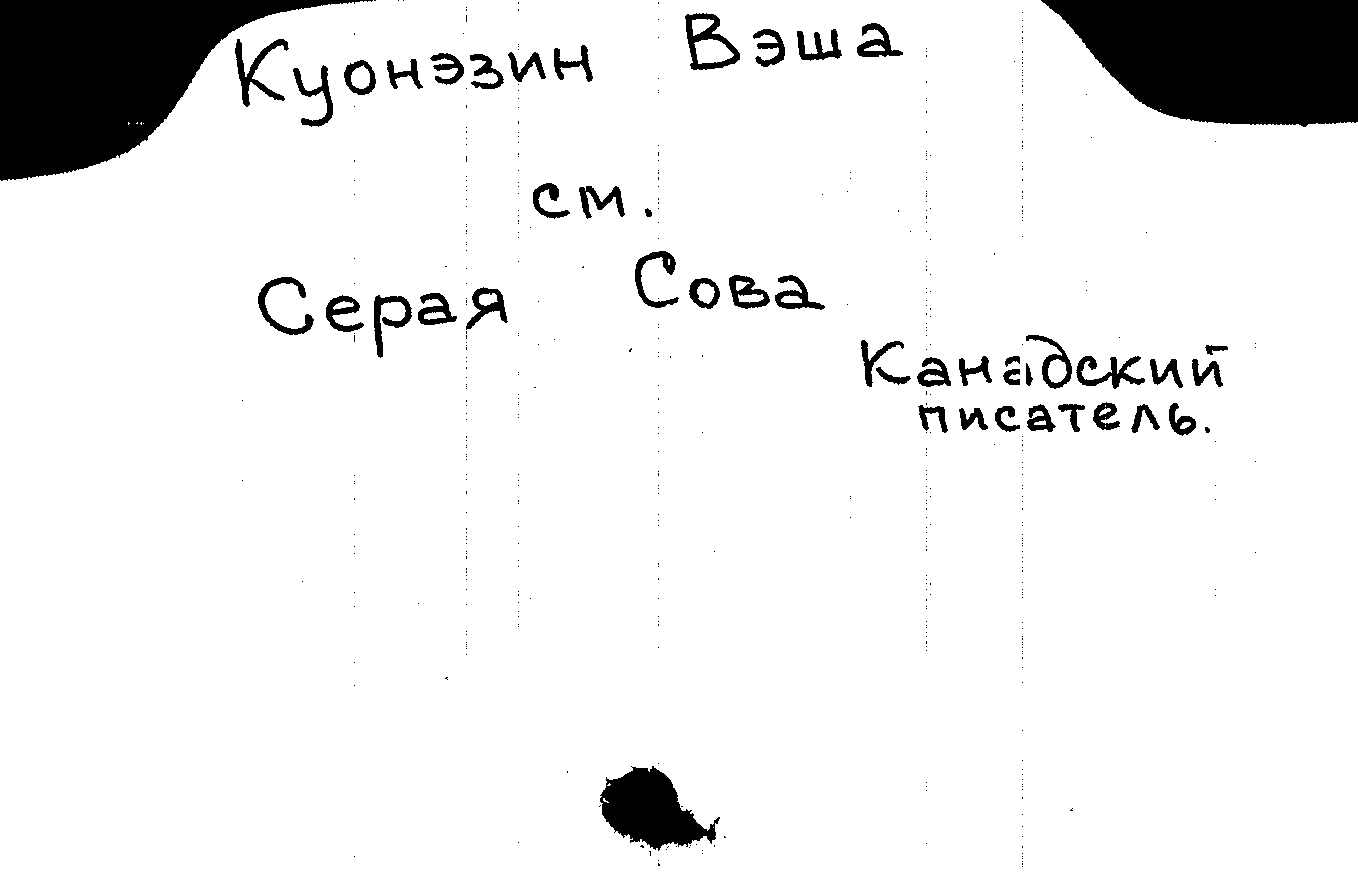 Куонэзин Вэша
см.
Серая Сова
Канадский
писатель.